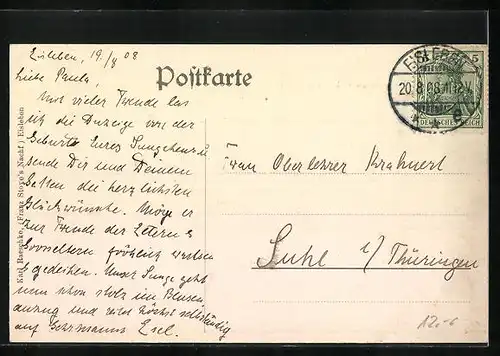 Eisleben, 19./8 08
Postkarte
Liebe Paula,
Mit vieler Freude las
ich die Anzeige von der
Geburt Eures Jungchens u
sende Dir und Deinem
Gatten die herzlichsten
Glückwünsche. Möge er
zur Freude der Eltern &
Grosseltern fröhlich wachsen
& gedeihen. Unser Junge geht
nun schon stolz im Blusen
anzug und reitet höchst selbständig
auf Gehrmanns Esel.
Karl Haephke, (Franz Stoye's Nachf.) Eisleben
EISLEBEN
20.8.08.11-12V.
5
DEUTSCHES REICH
Frau Oberlehrer Krahnert
Suhl i/ Thüringen